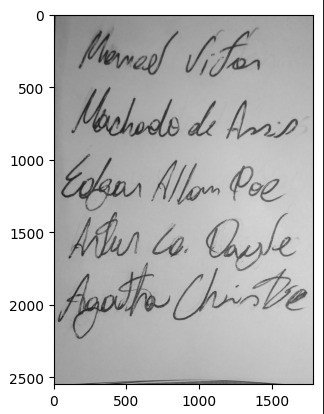 0
Manoel Vitor
500
Machado de Assis
1000
Edgar Allan Poe
1500
Artur Co. Doyle
2000
Agatha Christie
2500
0 500 1000 1500